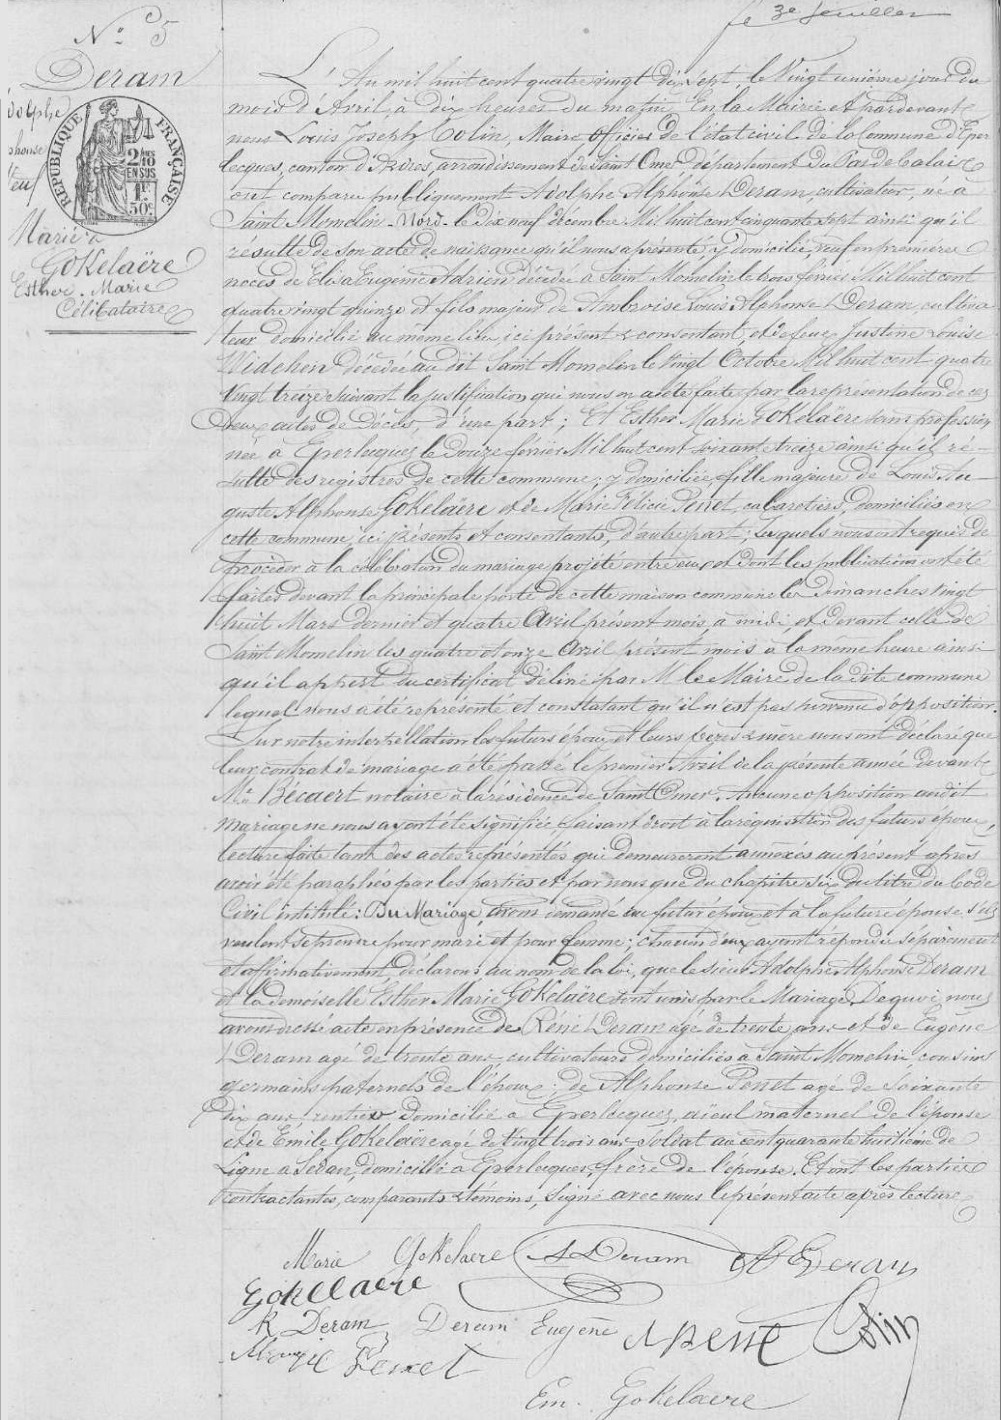 le 3e feuillet
No 5
Deram
Adolphe
Alphonse
Veuf
RÉPUBLIQUE FRANÇAISE
2 10mes
EN SUS
1F.
50c.
Marié à
Gokelaëre
Esther. Marie
Célibataire
L'An mil huit cent quatre vingt dix sept, le Vingt unième jour du
mois d'Avril, à dix heures du matin, En la Mairie et par devant
nous Louis Joseph Colin, Maire officier de l'état civil de la Commune d'Eper
lecques, canton d'Ardres, arrondissement de Saint Omer, département du Pas de Calais
ont comparu publiquement Adolphe Alphonse Deram, cultivateur, né à
Saint Momelin - Nord - le dix neuf décembre Mil huit cent cinquante sept ainsi qu'il
résulte de son acte de naissance qu'il nous a présenté, y domicilié, veuf en premières
noces de Elisa Eugénie Adrien décédée à Saint Momelin le trois février Mil huit cent
quatre vingt quinze et fils majeur de Ambroise Louis Alphonse Deram, cultiva
teur domicilié au même lieu, ici présent & consentant, et de feue Justine Louise
Widehen décédée au dit Saint Momelin le vingt Octobre Mil huit cent quatre
vingt treize suivant la justification qui nous en a été faite par la représentation de ces
deux actes de décès, d'une part ; Et Esther Marie Gokelaëre sans profession
née à Eperlecques le douze février Mil huit cent soixante treize ainsi qu'il ré-
sulte des registres de cette commune, y domiciliée, fille majeure de Louis Au
guste Alphonse Gokelaëre et de Marie Félicie Penet, cabaretiers, domiciliés en
cette commune, ici présents et consentants, d'autre part ; Lesquels nous ont requis de
procéder à la célébration du mariage projeté entre eux et dont les publications ont été
faites devant la principale porte de cette maison commune les Dimanches vingt
huit Mars dernier et quatre Avril présent mois, à midi, et devant celle de
Saint Momelin les quatre et onze Avril présent mois à la même heure ainsi
qu'il appert du certificat délivré par M le Maire de la dite commune
lequel nous a été représenté et constatant qu'il n'est pas survenu d'opposition.
Sur notre interpellation les futurs époux et leurs pères & mère nous ont déclaré que
leur contrat de mariage a été passé le premier Avril de la présente année devant
Me Bécaert notaire à la résidence de Saint Omer. Aucune opposition audit
mariage ne nous ayant été signifiée, faisant droit à la réquisition des futurs époux,
lecture faite tant des actes représentés qui demeureront annexés au présent après
avoir été paraphés par les parties et par nous que du chapitre six du titre du Code
Civil intitulé : Du Mariage, avons demandé au futur époux et à la future épouse s'ils
veulent se prendre pour mari et pour femme ; chacun d'eux ayant répondu séparément
et affirmativement, déclarons, au nom de la loi, que le sieur Adolphe Alphonse Deram
et la demoiselle Esther Marie Gokelaëre sont unis par le Mariage. De quoi, nous
avons dressé acte en présence de Réné Deram agé de trente ans et de Eugène
Deram agé de trente ans cultivateurs domiciliés à Saint Momelin cousins
germains paternels de l'époux ; de Alphonse Penet agé de soixante
dix ans, rentier domicilié à Eperlecques, aïeul maternel de l'épouse
et de Émile Gokelaëre agé de vingt trois ans soldat au cent quarante huitième de
Ligne à Sedan, domicilié à Eperlecques, frère de l'épouse. Et ont les parties
contractantes, comparants & témoins, signé avec nous le présent acte après lecture
Marie Gokelaere A Deram A Deram
Gokelaere
R Deram Deram Eugène A penet Colin
Penet
Em. Gokelaere